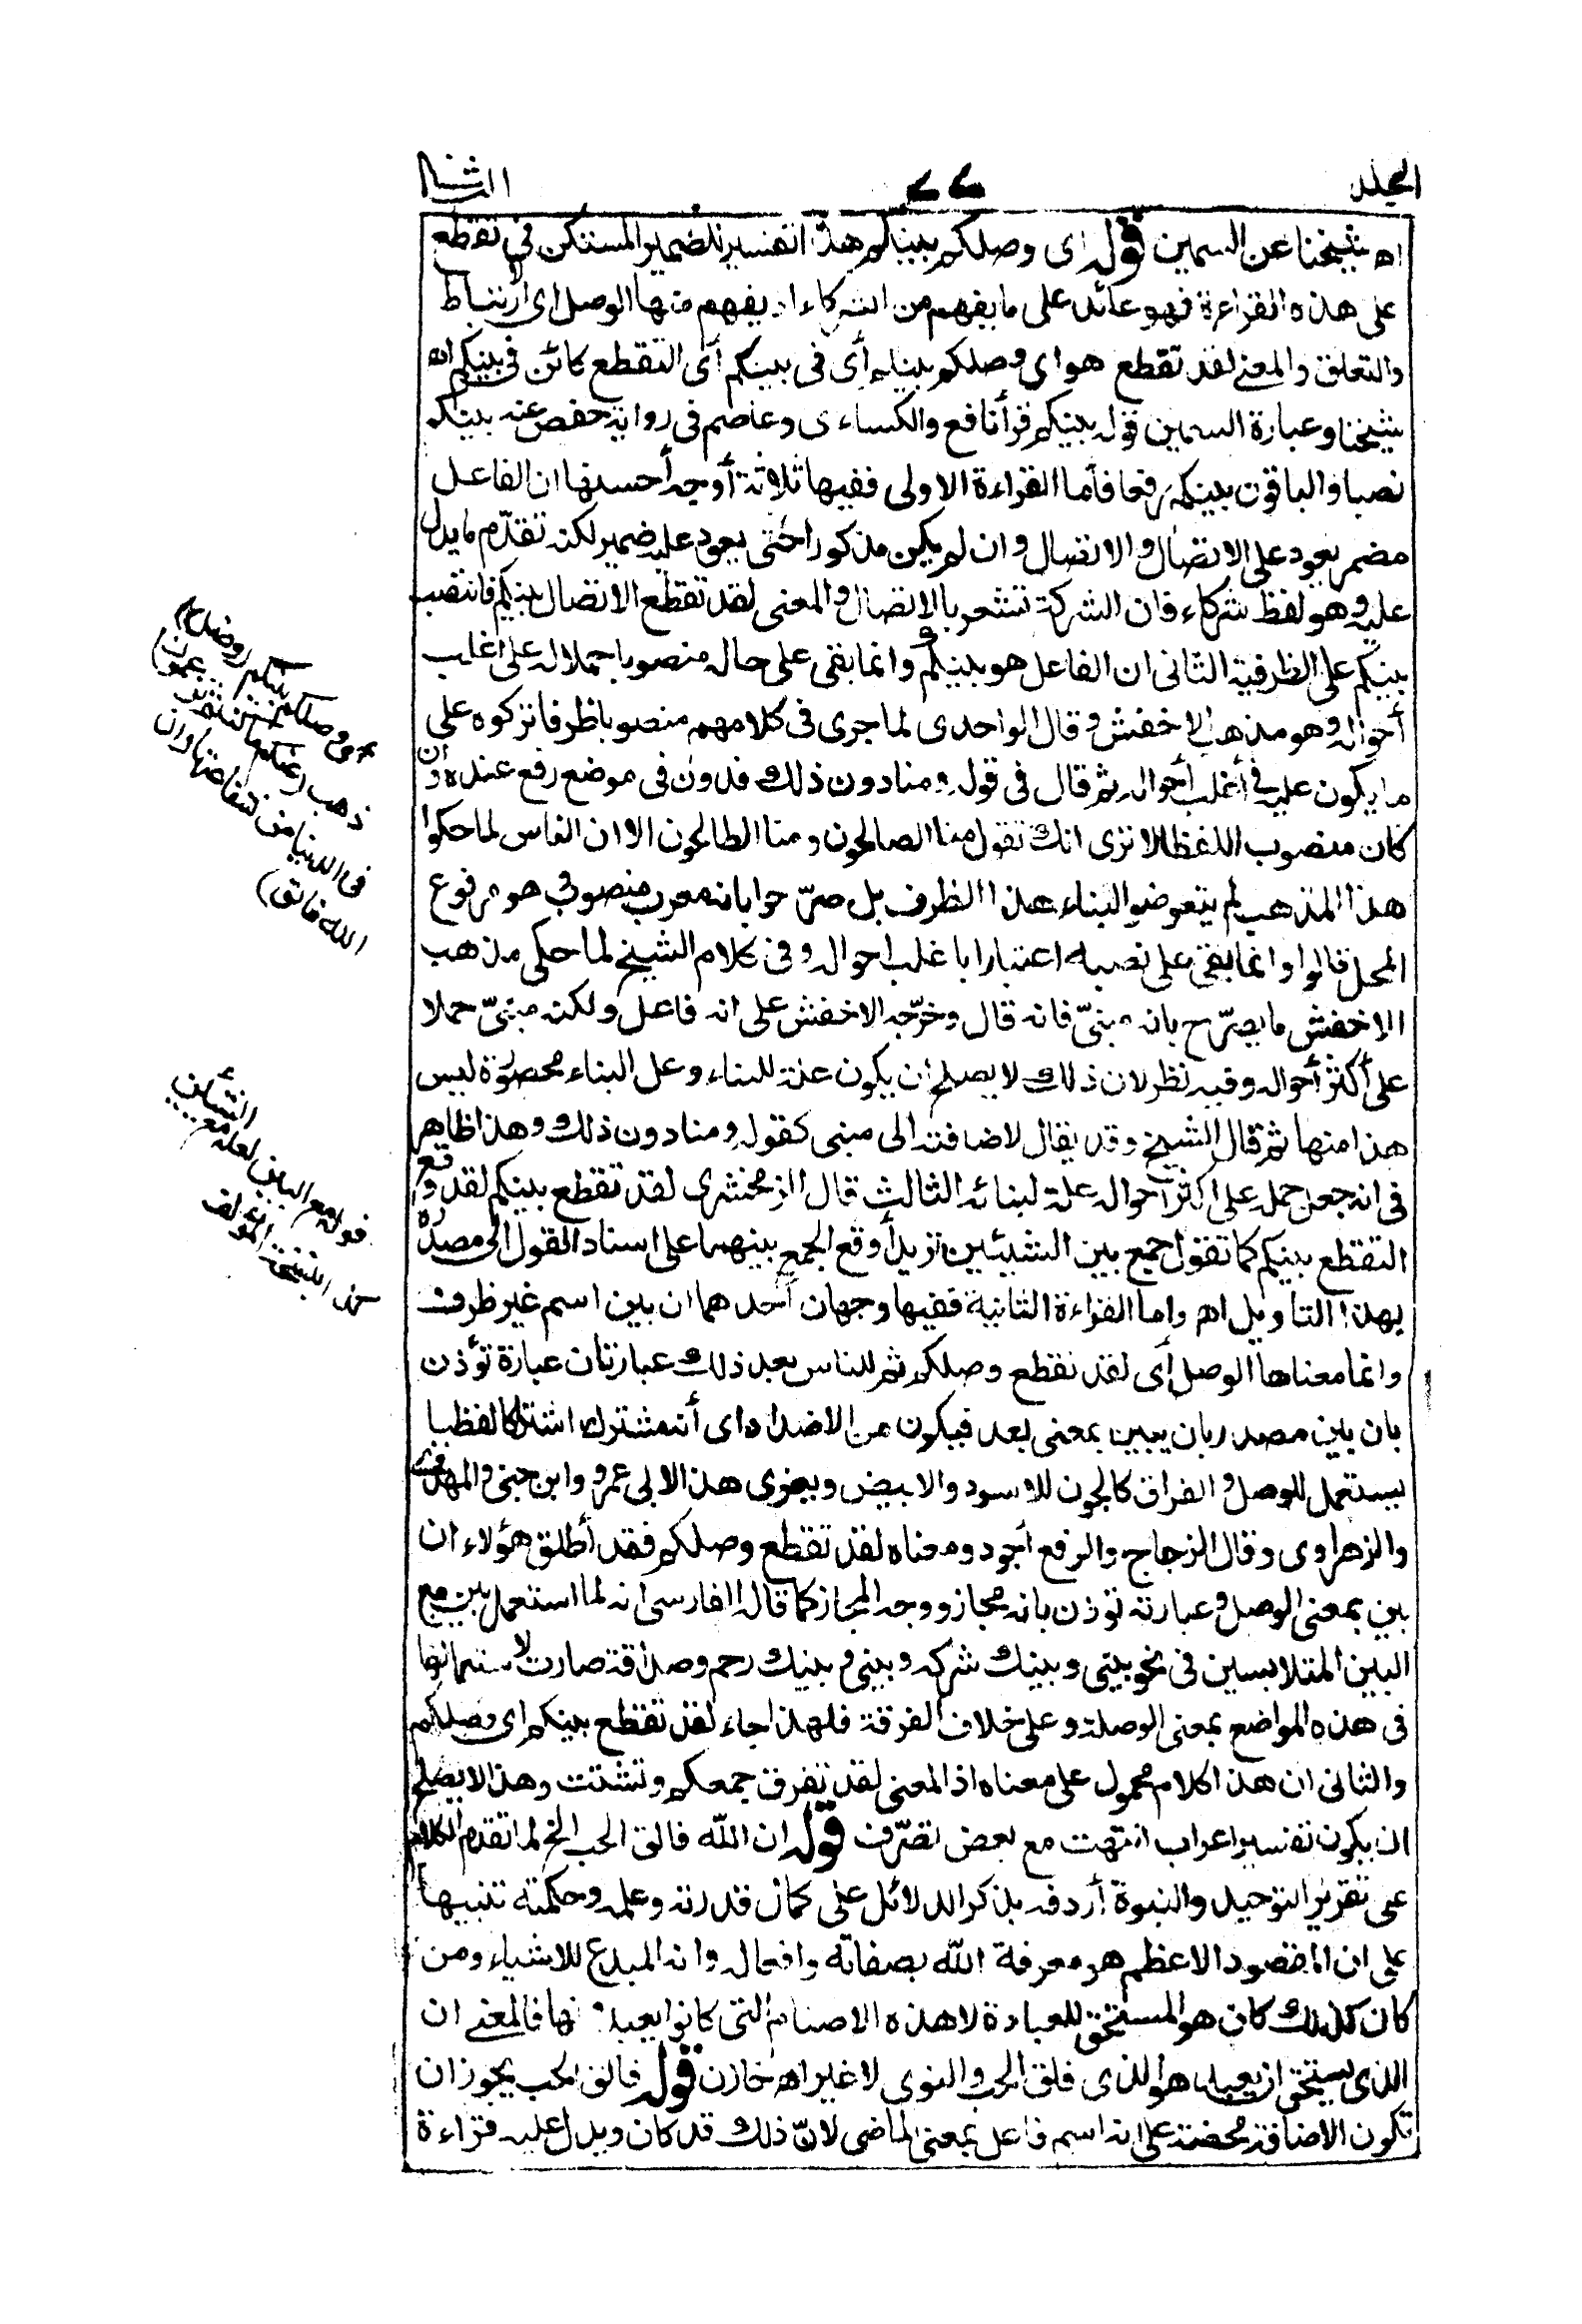 المجلد
٧٧
الثانى
اه شيخنا عن السمين قوله اى وصلكم بينكم هذا تفسير للضمير المستكن فى تقطع
على هذه القراءة فهو عائد على ما يفهم من الشركاء اذ يفهم منها الوصل اى الارتباط
والتعلق والمعنى لقد تقطع هو اى وصلكم بينكم أى فى بينكم أى التقطع كائن فى بينكم اه
شيخنا وعبارة السمين قوله بينكم قرأ نافع والكساءى وعاصم فى رواية حفص عنه بينكم
نصبا والباقون بينكم رفعا فأما القراءة الاولى ففيها ثلاثة أوجه أحسنها ان الفاعل
مضمر يعود على الاتصال والاتصال وان لم يكن مذكورا حتى يعود عليه ضمير لكنه تقدّم ما يدل
عليه وهو لفظ شركاء فان الشركة تشعر بالاتصال والمعنى لقد تقطع الاتصال بينكم فانتصب
بينكم على الظرفية الثانى ان الفاعل هو بينكم وانما بقى على حاله منصوبا حملا له على اغلب
أحواله وهو مذهب الاخفش وقال الواحدى لما جرى فى كلامهم منصوبا ظرفا تركوه على
ما يكون عليه فى أغلب أحواله ثم قال فى قوله ومنا دون ذلك فدون فى موضع رفع عنده وان
كان منصوب اللفظ الا ترى انك تقول منا الصالحون ومنا الطالحون الا ان الناس لما حكوا
هذا المذهب لم يتعرضوا لبناء هذا الظرف بل صرّحوا بانه معرب منصوب وهو مرفوع
المحل قالوا وانما بقى على نصبه اعتبارا باغلب احواله وفى كلام الشيخ لما حكى مذهب
الاخفش ما يصرّح بانه مبنىّ فانه قال وخرّجه الاخفش على انه فاعل ولكنه مبنىّ حملا
على أكثر أحواله وفيه نظر لان ذلك لا يصلح ان يكون علة للبناء وعلل البناء محصورة ليس
هذا منها ثم قال الشيخ وقد يقال لاضافته الى مبنى كقوله ومنا دون ذلك وهذا ظاهر
فى انه جعل حمله على اكثر أحواله علة لبنائه الثالث قال الزمخشرى لقد تقطع بينكم لقد وقع
التقطع بينكم كما تقول جمع بين الشيئين تريد أوقع الجمع بينهما على اسناد القول الى مصدره
بهذا التاويل اه واما القراءة الثانية ففيها وجهان أحدهما ان بين اسم غير ظرف
وانما معناها الوصل أى لقد تقطع وصلكم ثم للناس بعد ذلك عبارتان عبارة تؤذن
بان بين مصدر بان يبين بمعنى بعد فيكون من الاضداد اى أنه مشترك اشتراكا لفظيا
يستعمل للوصل والفراق كالجون للاسود والابيض ويعزى هذا لابى عمرو وابن جنى والمهدوى
والزهراوى وقال الزجاج والرفع أجود ومعناه لقد تقطع وصلكم فقد أطلق هؤلاء ان
بين بمعنى الوصل وعبارة تؤذن بانه مجاز ووجه المجاز كما قاله الفارسى انه لما استعمل بين مع
البين المتلابسين فى نحو بينى وبينك شركة وبينى وبينك رحم وصداقة صارت لاستعمالها
فى هذه المواضع بمعنى الوصلة وعلى خلاف الفرقة فلهذا جاء لقد تقطع بينكم اى وصلكم
والثانى ان هذا الكلام محمول على معناه اذ المعنى لقد تفرق جمعكم وتشتت وهذا لا يصلح
ان يكون تفسير اعراب انتهت مع بعض تصرّف قوله ان الله فالق الحب الخ لما تقدم الكلام
على تقرير التوحيد والنبوة أردفه بذكر الدلائل على كمال قدرته وعلمه وحكمته تنبيها
على ان المقصود الاعظم هو معرفة الله بصفاته وافعاله وانه المبدع للاشياء ومن
كان كذلك كان هو المستحق للعبادة لا هذه الاصنام التى كانوا يعبدونها فالمعنى ان
الذى يستحق ان يعبد هو الذى فلق الحب والنوى لا غير اه خازن قوله فالق الحب يجوز ان
تكون الاضافة محضة على انه اسم فاعل بمعنى الماضى لانّ ذلك قد كان ويدل عليه قراءة
وصلكم بينكم (وضل)
ذهب (عنكم ما كنتم تزعمون)
فى الدنيا من شفاعتها وان
الله فالق)
الشيئين
قوله مع البين لعله مع
كذا بنسخة المؤلف